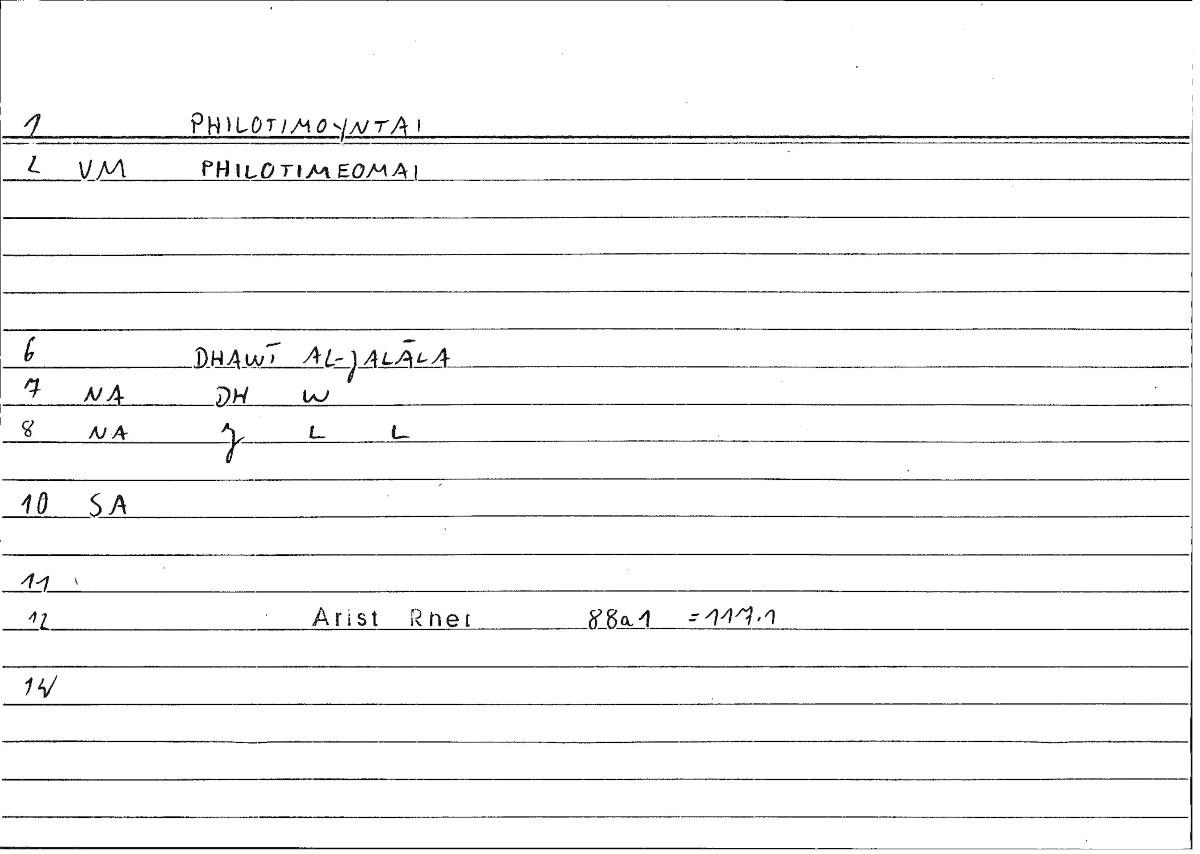 1 PHILOTIMOYNTAI
2 VM PHILOTIMEOMAI
6 DHAWĪ AL-JALĀLA
7 NA DH W
8 NA J L L
10 SA
11
12 Arist Rhet 88a1 =117.1
14